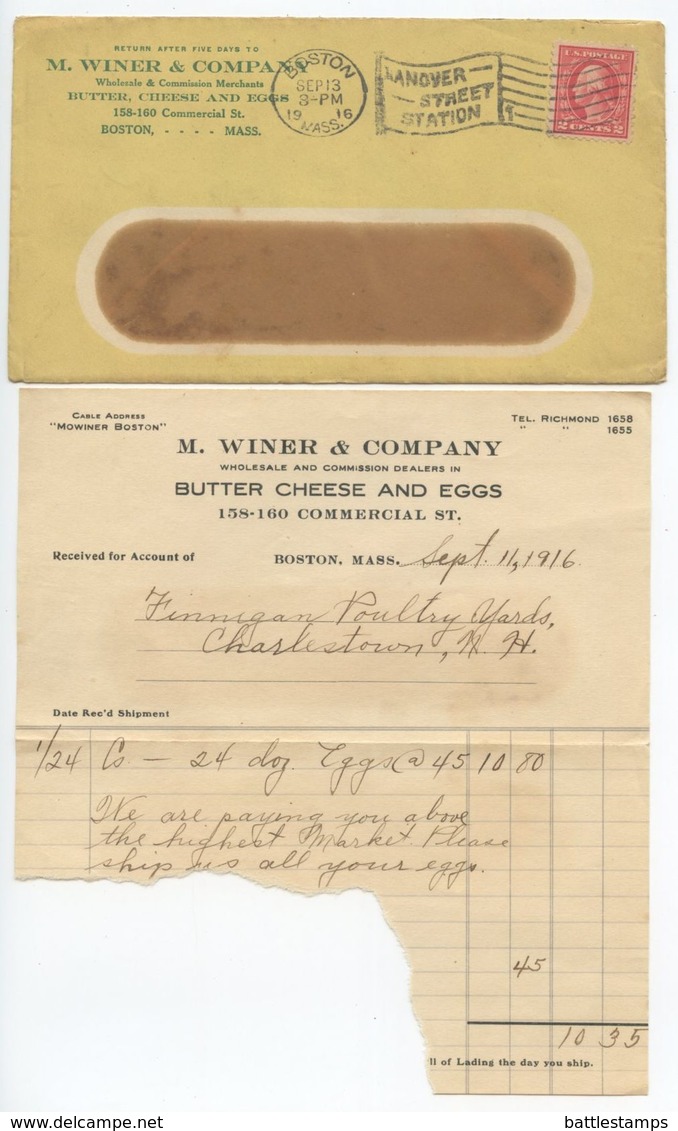 RETURN AFTER FIVE DAYS TO
M. WINER & COMPANY
Wholesale & Commission Merchants
BUTTER, CHEESE AND EGGS
158-160 Commercial St.
BOSTON, - - - - MASS.
BOSTON
SEP 13
3-PM
19 16
MASS.
HANOVER
STREET
STATION
1
U.S. POSTAGE
2 CENTS 2
CABLE ADDRESS
"MOWINER BOSTON"
TEL. RICHMOND 1658
" " 1655
M. WINER & COMPANY
WHOLESALE AND COMMISSION DEALERS IN
BUTTER CHEESE AND EGGS
158-160 COMMERCIAL ST.
Received for Account of BOSTON, MASS. Sept. 11, 1916
Finnigan Poultry Yards,
Charlestown, N. H.
Date Rec'd Shipment
1/24 Cs - 24 doz. Eggs @ 45 10 80
We are paying you above
the highest Market. Please
ship us all your eggs.
45
10 35
ll of Lading the day you ship.
battlestamps
delcampe.net